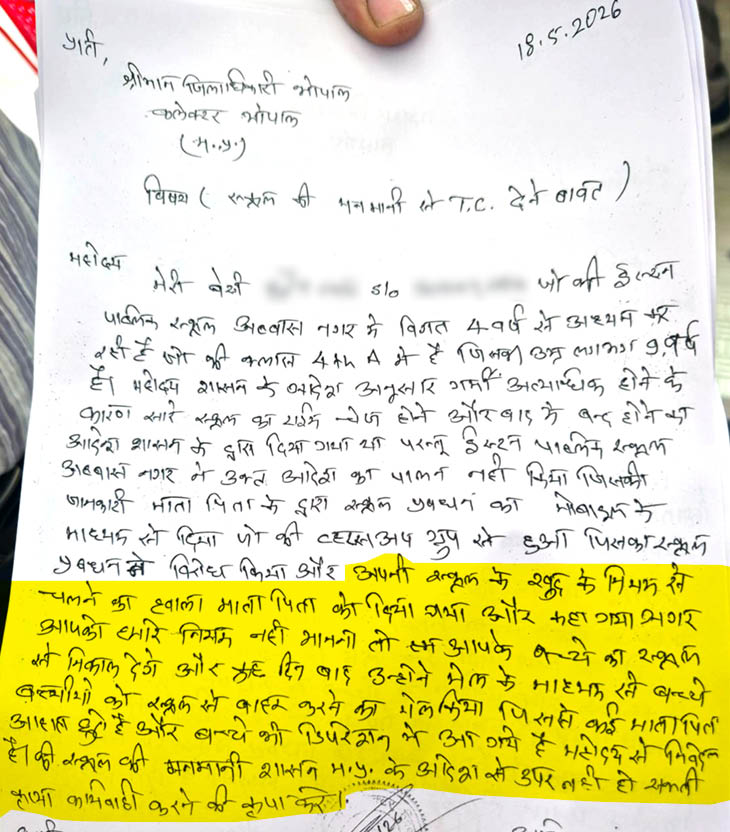 18.5.2026
प्रति,
श्रीमान जिलाधिकारी भोपाल
कलेक्टर भोपाल
(म.प्र.)
विषय ( स्कूल की मनमानी से T.C. देने बावत )
महोदय
मेरी बेटी s/o जो की ईस्टन
पाब्लिक स्कूल अब्बास नगर मे विगत 4 वर्ष से अध्यन कर
रही है जो की क्लास 4th A मे है जिसकी उम्र लगभग 9 वर्ष
है। महोदय शासन के आदेश अनुसार गर्मी अत्याधिक होने के
कारण सारे स्कूल का टाईम चेंज होने और बाद मे बन्द होने का
आदेश शासन के द्वारा दिया गया था परन्तु ईस्टन पाब्लिक स्कूल
अब्बास नगर मे उक्त आदेश का पालन नही किया जिसकी
जानकारी माता पिता के द्वारा स्कूल प्रबधन को मोबाइल के
माध्यम से दिया जो की व्हाट्सअप ग्रुप से हुआ जिसका स्कूल
प्रबधन ने विरोध किया और अपनी स्कूल के खुद के नियम से
चलने का हवाला माता पिता को दिया गया और कहा गया अगर
आपको हमारे नियम नही मानना तो हम आपके बच्चे को स्कूल
से निकाल देगे और कुछ दिन बाद उन्होने मेल के माध्यम से बच्चे
बच्चीयो को स्कूल से बाहर करने का मेल किया जिससे कई माता पिता
आहात हुते है और बच्चे भी डिपरेशन मे आ गये है महोदय से निवेदन
है। की स्कूल की मनमानी शासन म.प्र. के आदेश से उपर नही हो सकती
कार्यवाही करने की कृपा करे।
126